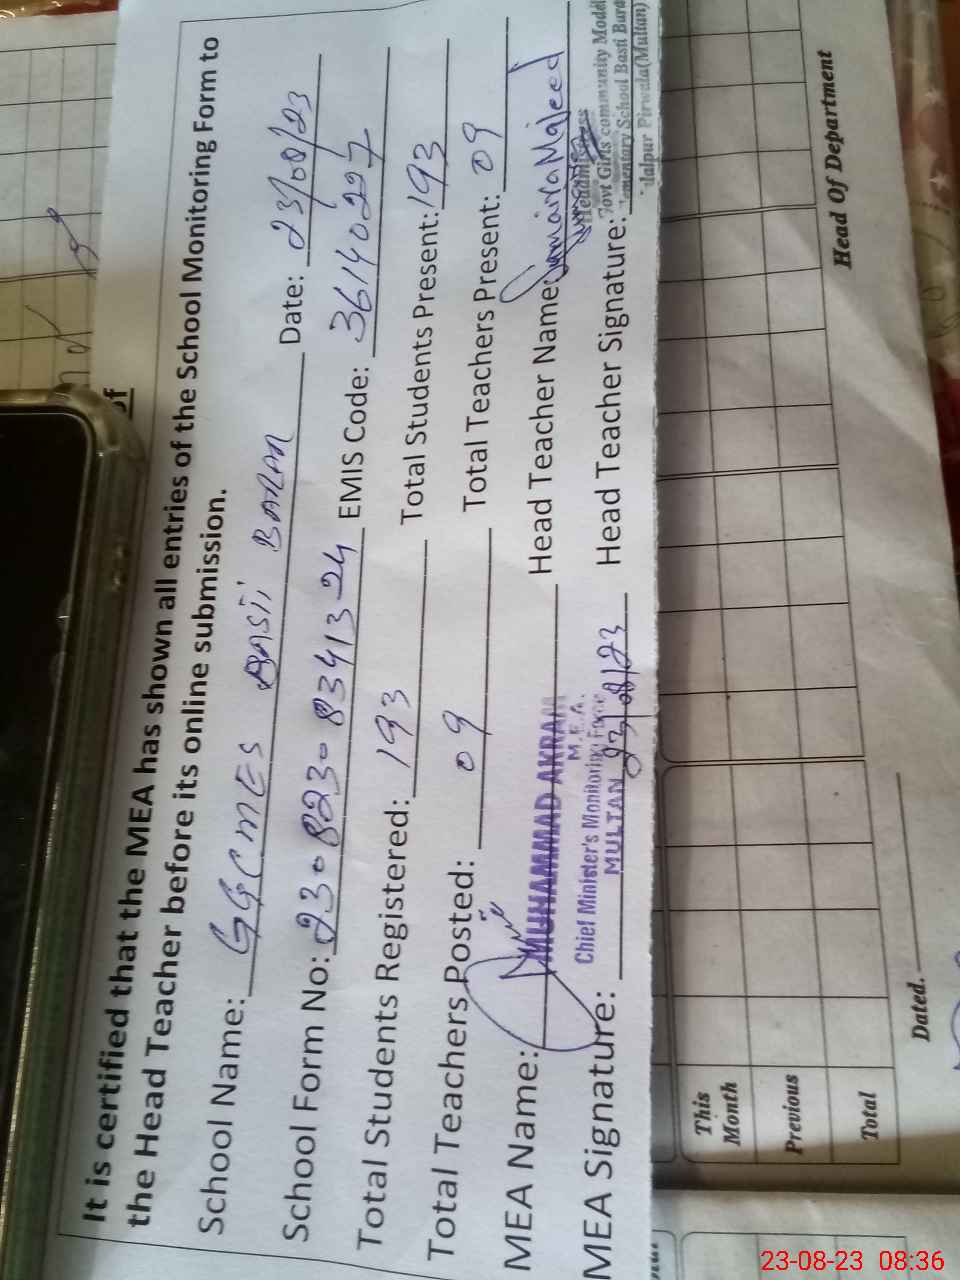 It is certified that the MEA has shown all entries of the School Monitoring Form to
the Head Teacher before its online submission.
School Name: GGCMES BASTI BARAR Date: 23/08/23
School Form No: 23082308341324 EMIS Code: 36140227
Total Students Registered: 193 Total Students Present: 193
Total Teachers Posted: 09 Total Teachers Present: 09
MEA Name: MUHAMMAD AKRAM Head Teacher Name: Jumaira Majeed
M.E.A.
Chief Minister's Monitoring Force
MULTAN
MEA Signature: 23/08/23 Head Teacher Signature:
Headmistress
Govt Girls community Model
Elementary School Basti Bara
Jalpur Pirwala(Multan)
of
Head Of Department
This
Month
Previous
Total
Dated.
23-08-23 08:36